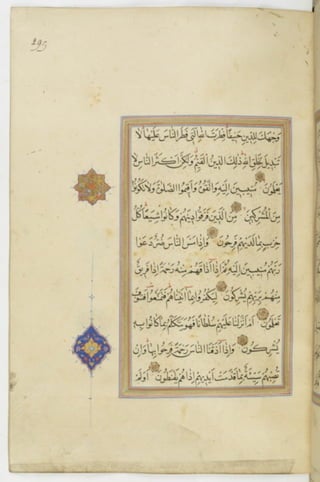 295
وَجْهَكَ لِلدِّينِ حَنِيفًا فِطْرَتَ اللَّهِ الَّتِي فَطَرَ النَّاسَ عَلَيْهَا لَا
تَبْدِيلَ لِخَلْقِ اللَّهِ ذَٰلِكَ الدِّينُ الْقَيِّمُ وَلَٰكِنَّ أَكْثَرَ النَّاسِ لَا
يَعْلَمُونَ مُنِيبِينَ إِلَيْهِ وَاتَّقُوهُ وَأَقِيمُوا الصَّلَوٰةَ وَلَا تَكُونُوا
مِنَ الْمُشْرِكِينَ مِنَ الَّذِينَ فَرَّقُوا دِينَهُمْ وَكَانُوا شِيَعًا كُلُّ
حِزْبٍ بِمَا لَدَيْهِمْ فَرِحُونَ وَإِذَا مَسَّ النَّاسَ ضُرٌّ دَعَوْا
رَبَّهُمْ مُنِيبِينَ إِلَيْهِ ثُمَّ إِذَا أَذَاقَهُمْ مِنْهُ رَحْمَةً إِذَا فَرِيقٌ
مِنْهُمْ بِرَبِّهِمْ يُشْرِكُونَ لِيَكْفُرُوا بِمَا آتَيْنَاهُمْ فَتَمَتَّعُوا فَسَوْفَ
تَعْلَمُونَ أَمْ أَنْزَلْنَا عَلَيْهِمْ سُلْطَانًا فَهُوَ يَتَكَلَّمُ بِمَا كَانُوا بِهِ
يُشْرِكُونَ وَإِذَا أَذَقْنَا النَّاسَ رَحْمَةً فَرِحُوا بِهَا وَإِنْ
تُصِبْهُمْ سَيِّئَةٌ بِمَا قَدَّمَتْ أَيْدِيهِمْ إِذَا هُمْ يَقْنَطُونَ أَوَلَمْ